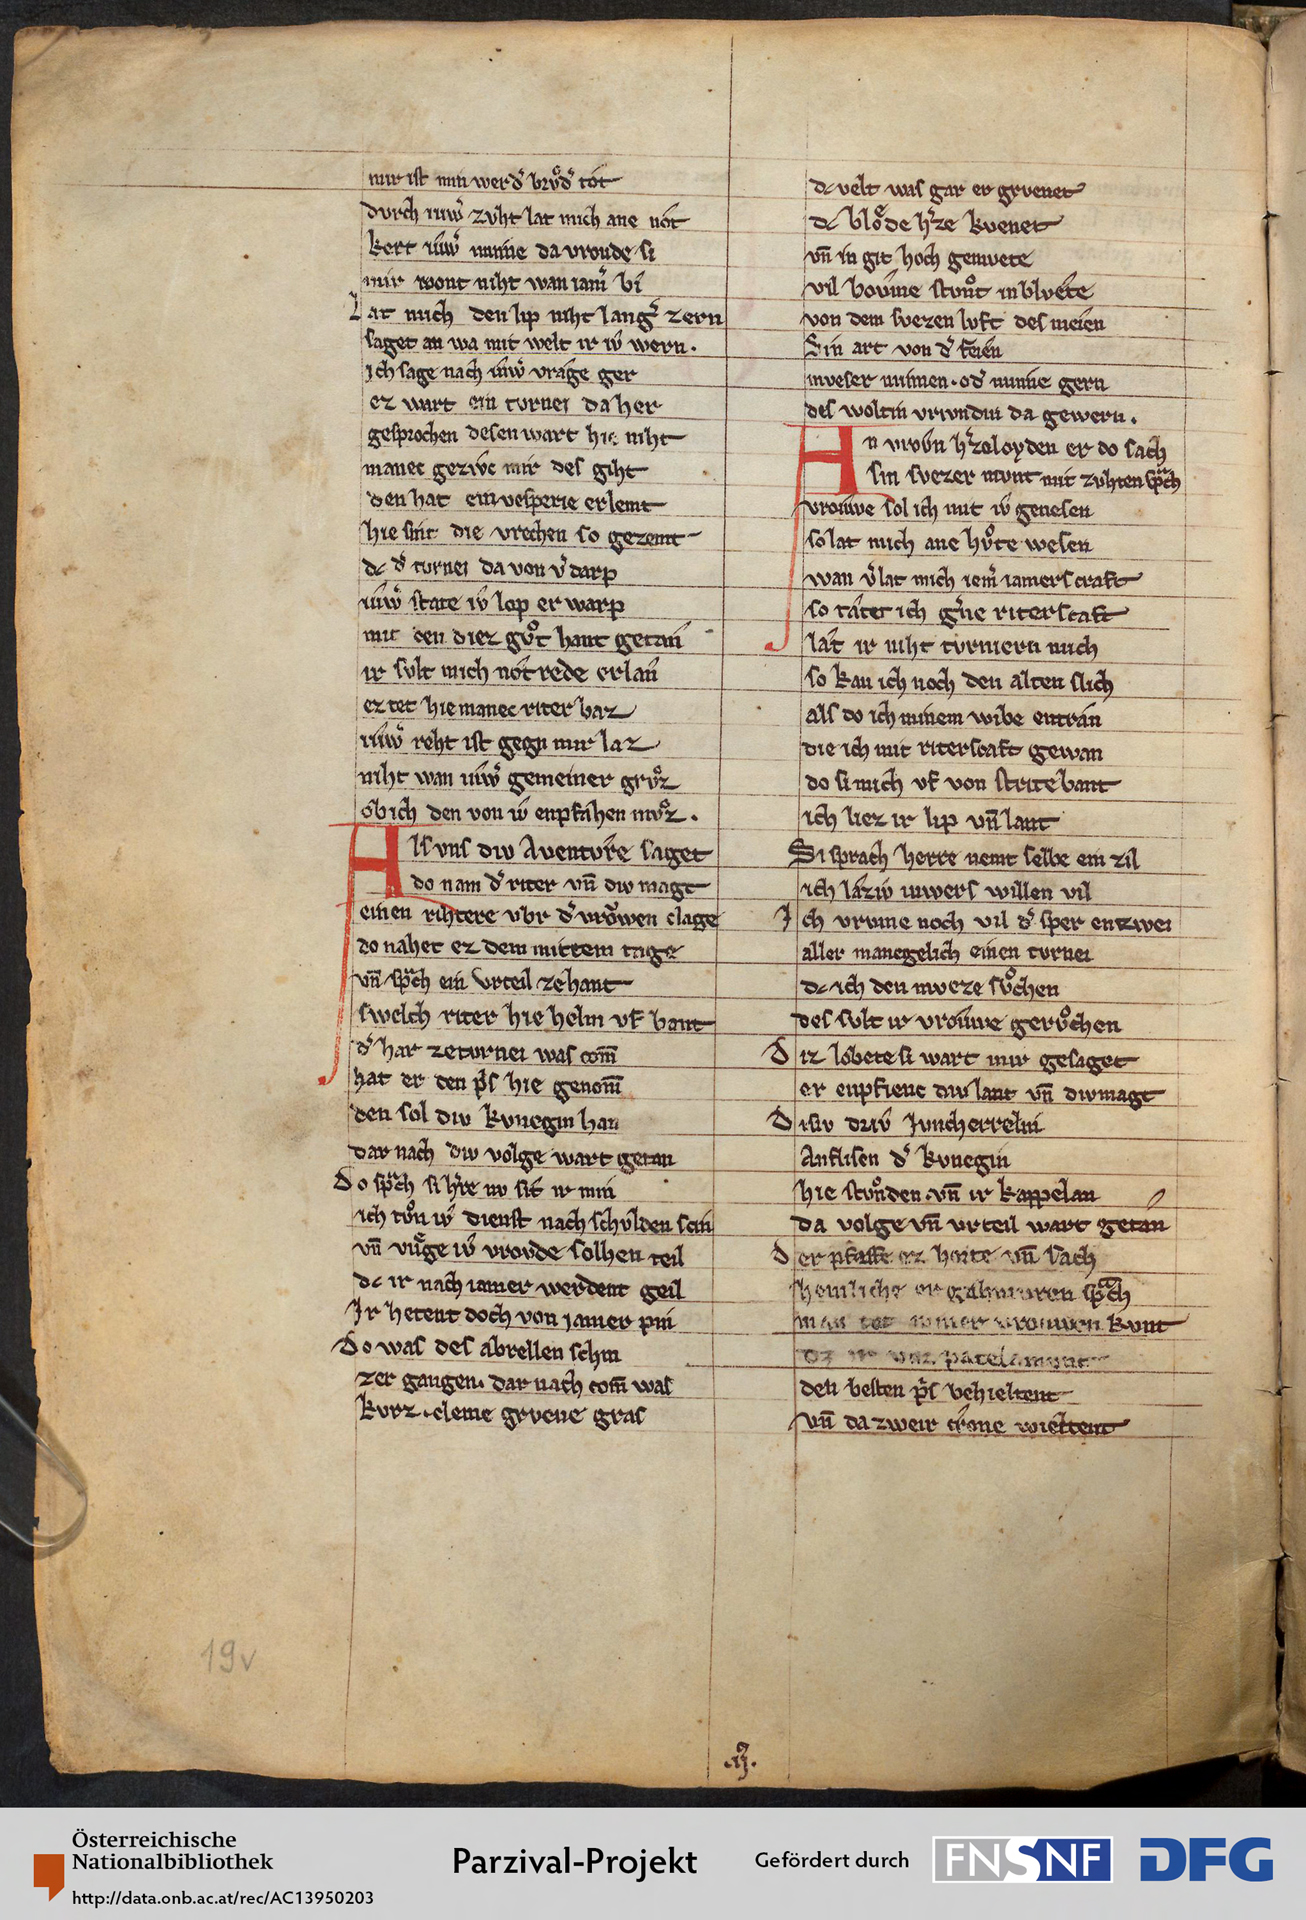 mir ist min werd͛ brvͦd͛ tot
dvrch iuwͦ zvht lat mich ane not
kert iuwͦ minne da vroude si
mir wont niht wan iam͛ bi
Lat mich den lip niht lang͛ zern
saget an wa mit welt ir iv̂ wern.
ich sage nach iuwͦ vrage ger
ez wart ein tvrnei da her
gesprochen desen wart hie niht
manec gezivc mir des giht
den hat ein vesperie erlemt
hie sint die vrechen so gezemt
dc d͛ tvrnei da von v͛darp
iuwͦ state iv̂ lop er warp
mit den diez gvͦt hant getan
ir svlt mich notrede erlan
ez tet hie manec riter baz
iuwͦ reht ist gegn mir laz
niht wan iuwͦ gemeiner grvͦz
ob ich den von iv̂ enpfahen mvͦz.
Als vns div Aventvre saget
do nam d͛ riter vn̄ div magt
einen rihtere vbr d͛ vroͮwen clage
do nahet ez dem mittem tage
vn̄ sp͛ch ein Vrteil zehant
swelch riter hie helm vf bant
d͛ har ze tvrnei was com̄
hat er den p͛s hie genom̄
den sol div kvnegin han
dar nach div volge wart getan
Do sp͛ch si h͛re nv sit ir min
ich tvͦn iv̂ dienst nach schvlden scin
vn̄ vuͤge iv̂ vrovde solhen teil
dc ir nach iamer werdent geil
Ir hetent doch von iamer pin
Do was des abrellen schin
zer gangen. dar nach com̄ was
kvrz. cleine grvene gras
dc velt was gar er grvenet
dc bloͤde h͛ze kvenet
vn̄ in git hoch gemvete
vil bovme stvnͦt in blvete
von dem svezen lvft des meien
Sin art von d͛ feien
mveser minnen. od͛ minne gern
des woltin vrivndin da gewern.
An vrovn h͛zeloyden er do sach
sin svezer mvnt mit zvhten sp͛ch
vrouwe sol ich mit iv̂ genesen
so lat mich ane hvͦte wesen
wan v͛lat mich iem͛ iamers craft
so tatet ich g͛ne riterscaft
lat ir niht tvrniern mich
so kan ich noch den alten slich
als do ich minem wibe entran
die ich mit riterscaft gewan
do si mich vf von strite bant
ich liez ir lip vn̄ lant
Si sprach herre nemt selbe ein zil
ich laziv iuwers willen vil
Ich vrvme noch vil d͛ sper entzwei
aller manegelich einen tvrnei
dc ich den mveze svͦchen
des svlt ir vrouwe gervͦchen
Diz lobete si wart mir gesaget
er enpfienc div lant vn̄ div magt
Disiv driv Ivncherrelin
Anflisen d͛ kvnegin
hie stvͦnden. vn̄ ir kappelan
da volge vn̄ vrteil wart getan
Der pfaffe ez horte vn̄ sach
heinliche er gahmvren sp͛ch
man tet miner vrouwen kvnt
dz ir vor patelamvnt
den besten p͛s behieltent
vn̄ da zweir crone wieltent
19v
.ij.
Österreichische
Nationalbibliothek
http://data.onb.ac.at/rec/AC13950203
Parzival-Projekt
Gefördert durch
FNSNF
DFG